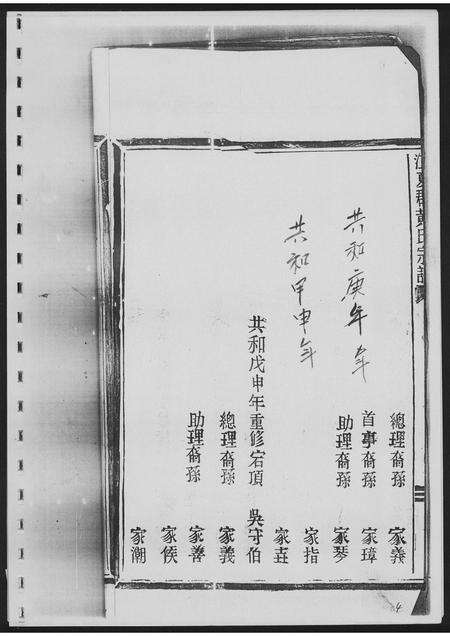 江夏郡黃氏宗譜
總理裔孫 家義
首事裔孫 家璋
共和庚午年
助理裔孫 家琴
家指
共和甲申年
家壵
共和戊申年重修宕頂 吳守伯
總理裔孫 家義
助理裔孫 家善
家侯
家潮
4